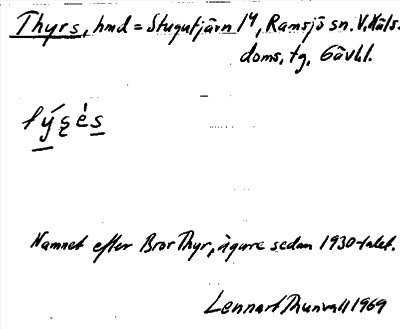 Thyrs, hmd = Stugutjärn 1⁴, Ramsjö sn. V. Häls.
doms. tg, Gävhl.
Namnet efter Bror Thyr, ägare sedan 1930-talet.
Lennart Thunvall 1969